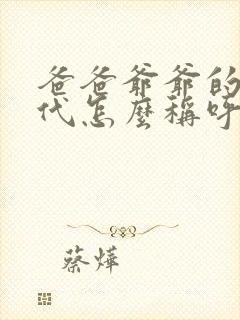 爸爸爺爺的
代怎麼稱呼
蔡燁